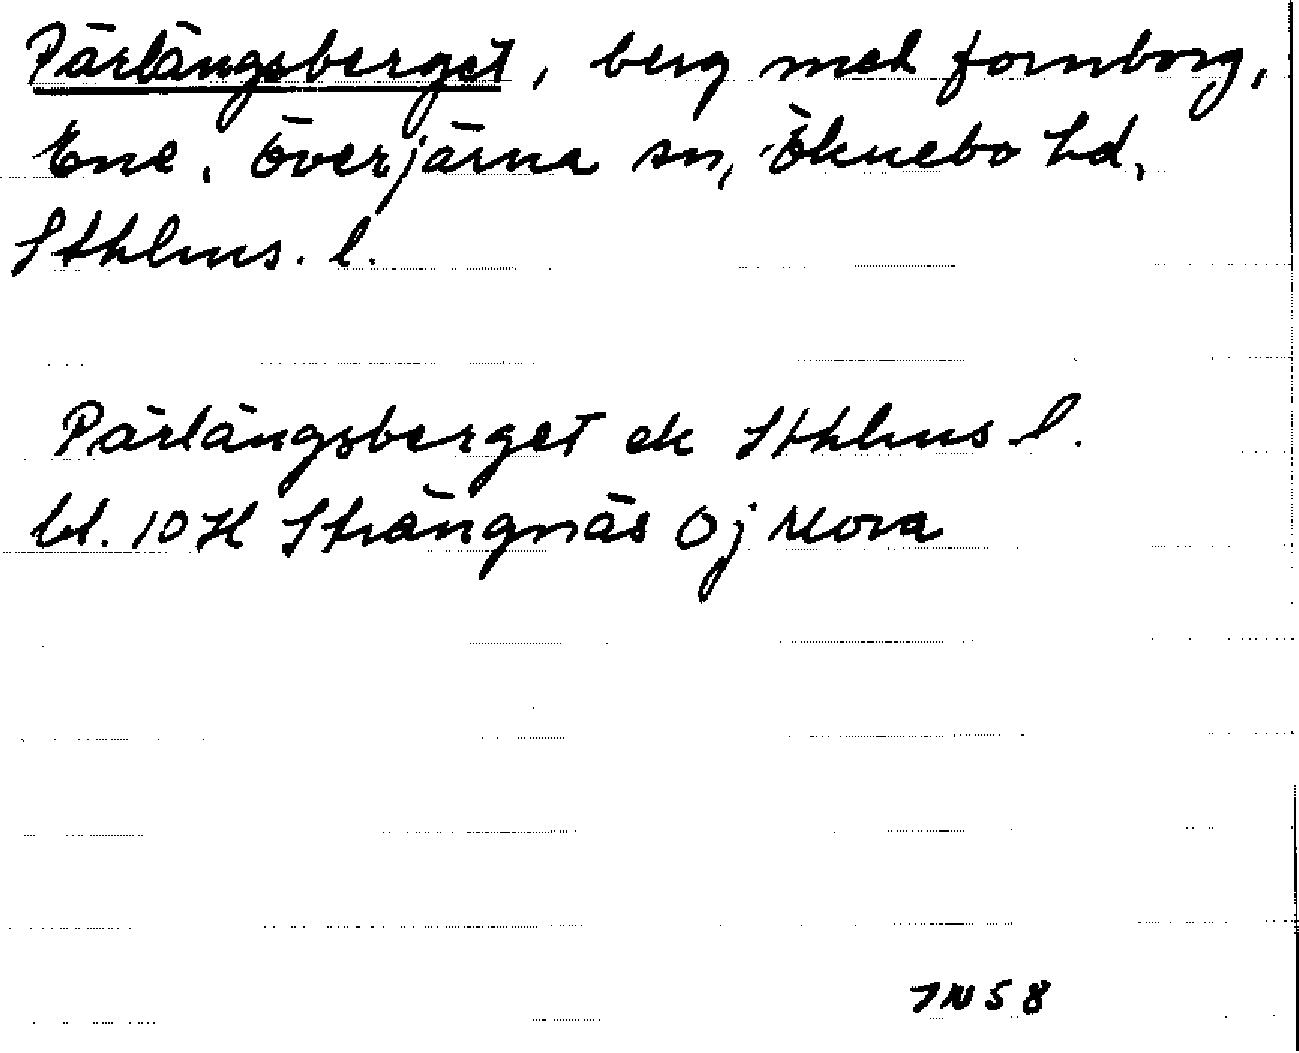 Pärlängsberget, berg med fornborg,
Ene, Överjärna sn, Öknebo hd,
Sthlms. l.
Pärlängsberget ek Sthlms l.
bl. 10H Strängnäs 0j Mora
7N58